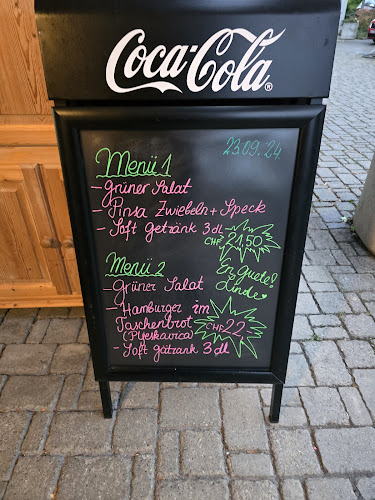 Coca-Cola®
23.09.24.
Menü 1
- grüner Salat
- Pinsa Zwiebeln + Speck
- Soft getränk 3 dl
CHF 21,50
Menü 2
En guete!
Linde
- Grüner Salat
- Hamburger im
Taschenbrot
(Pljeskavica)
CHF 22.-
- Soft getränk 3 dl